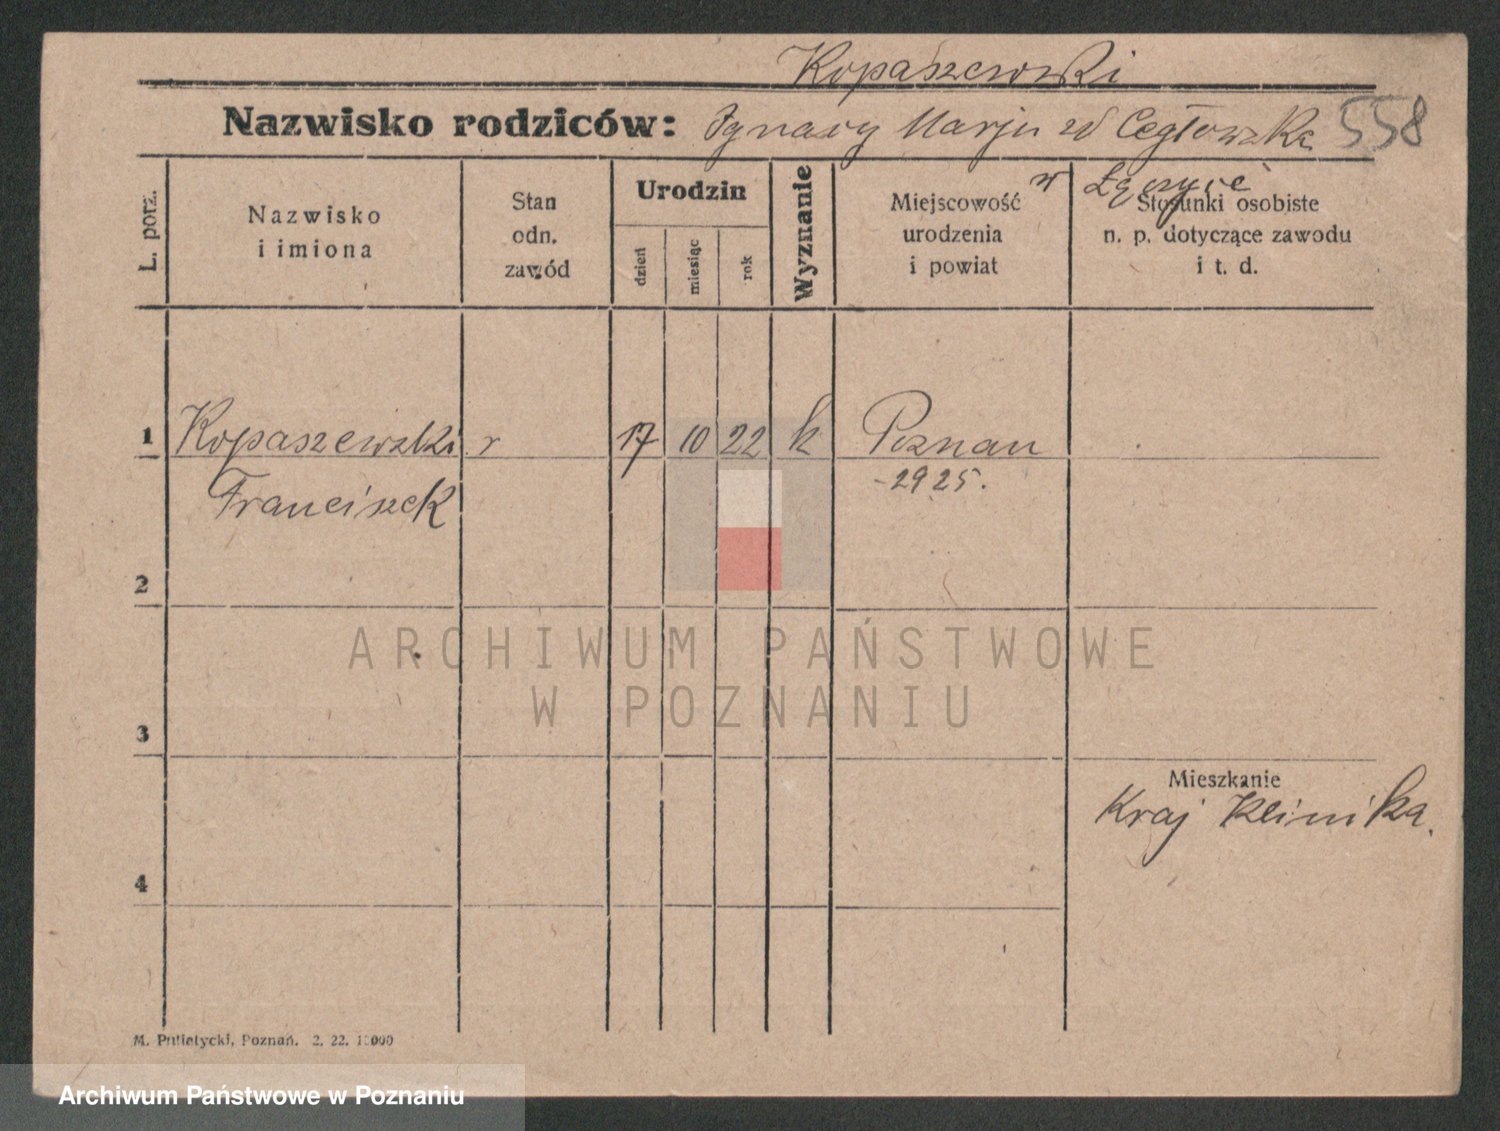 Kopaszewski
Nazwisko rodziców: Ignacy Marja zd Cegłowska 558
w Łęczyce
L. porz.
Nazwisko i imiona
Stan odn. zawód
Urodzin
dzień
miesiąc
rok
Wyznanie
Miejscowość urodzenia i powiat
Stosunki osobiste n. p. dotyczące zawodu i t. d.
1 Kopaszewski r 17 10 22 k Poznan
Franciszek -2925.
2
ARCHIWUM PAŃSTWOWE
W POZNANIU
3
Mieszkanie
Kraj Klinika.
4
M. Putiatycki, Poznań. 2. 22. 1 000
Archiwum Państwowe w Poznaniu